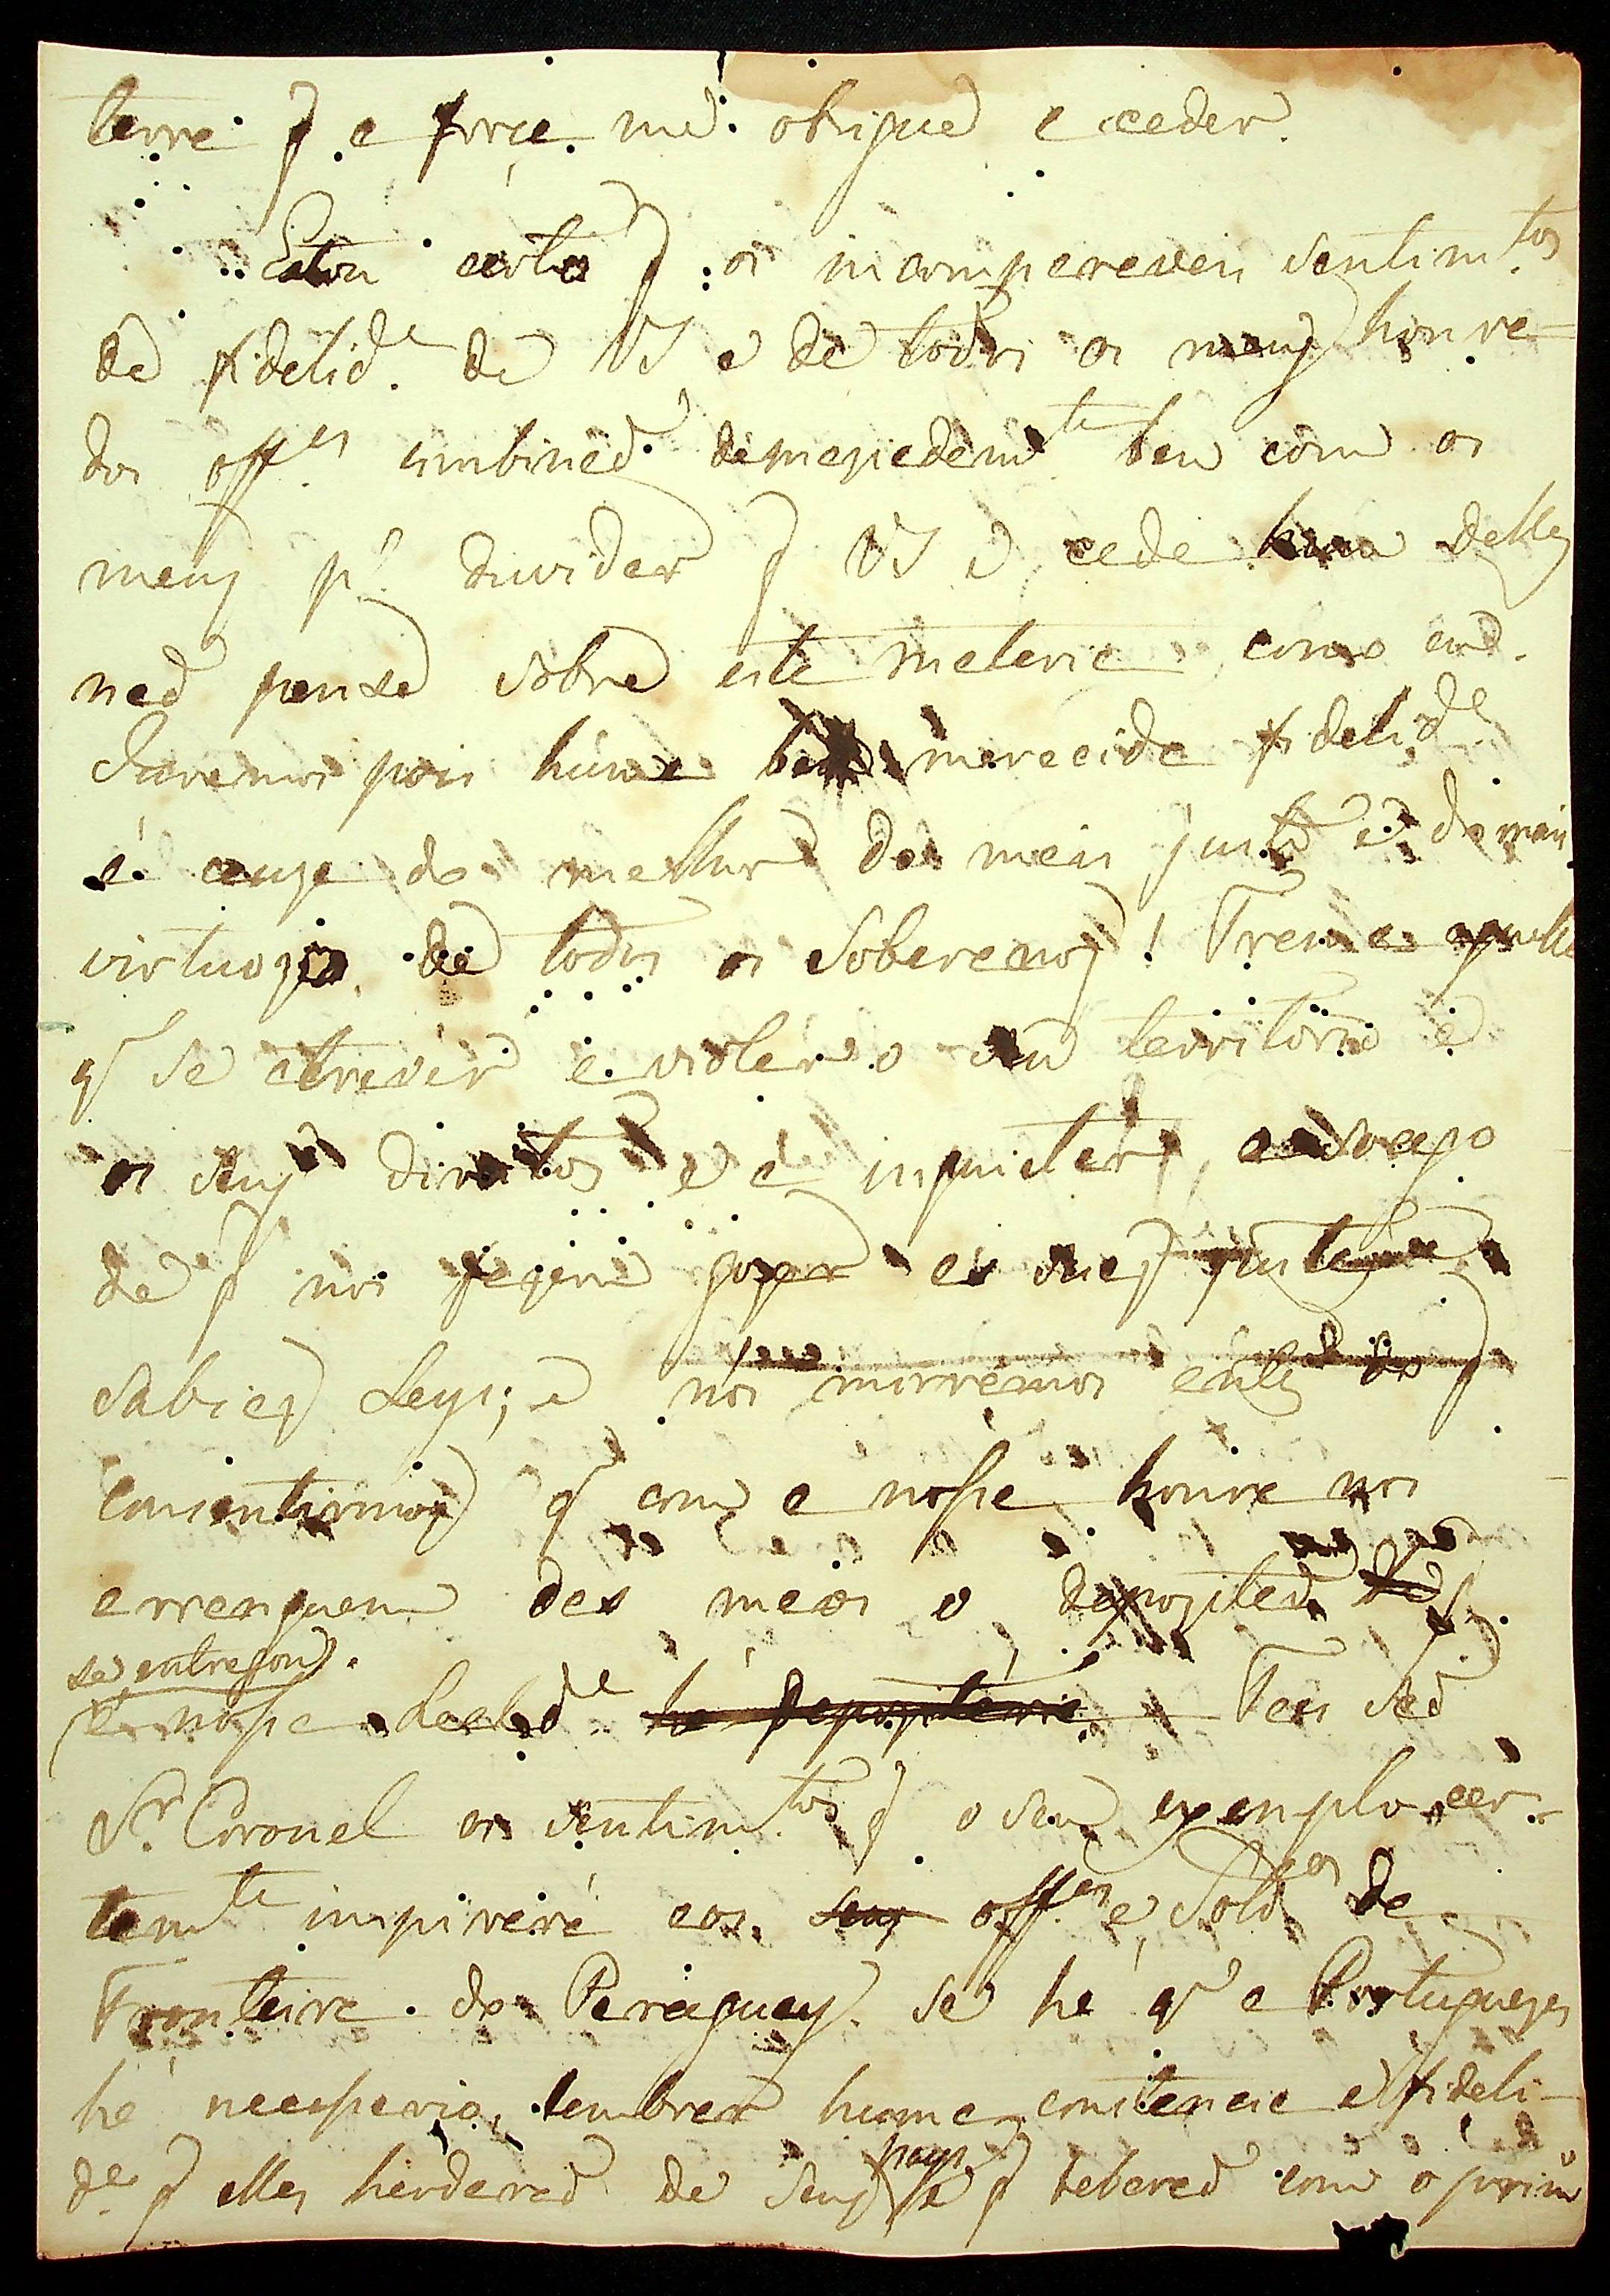 terra q a força me obrigue a ceder.
Estou certo q os incomparaveis sentim.tos
de fidelid.e de VS e de todos os meus honra-
dos off.es combinaõ demasiadam.te bem com os
meus p.a duvidar q VS e cada hum delles
naõ pense sobre esta materia como eu.
Juremos pois huma bem merecida fidelid.e
á cauza do melhor do mais justo e do mais
virtuozo de todos os Soberanos! Trema aquelle
q se atrever a violar o seu territorio e
os seus direitos e a inquietar, o socego
de q nos fazem gozar as suas justas e
Sabias Leys; e nós morrêmos antes do q
consentirmos q com a nossa honra nos
arranquem das maõs o depozito de q
se entregou
a nossa Leald.e he depozitária. Taes saõ
S.r Coronel os sentim.tos q o seu exemplo cer-
tam.te inspirará aos seus off.es e Sold.os da
Fronteira do Paraguay. se he q a Portuguezes
he necessario lembrar huma constancia e fideli-
d.e q elles herdaraõ de seus pays e q beberaõ com o prim.o